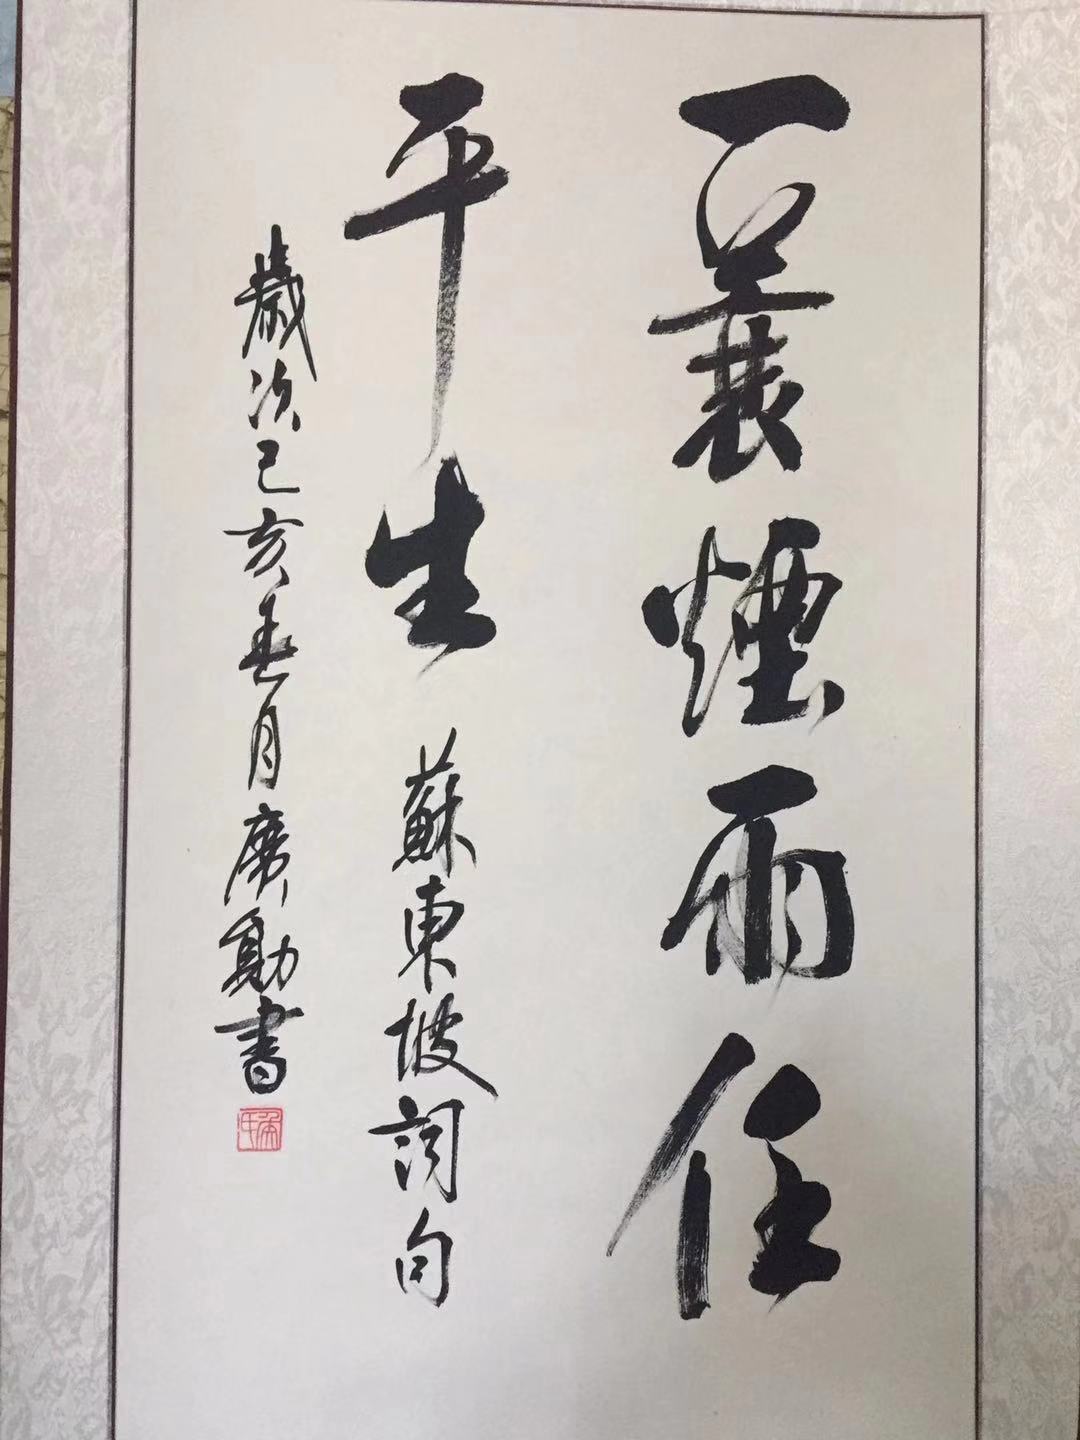 一蓑煙雨任
平生 蘇東坡詞句
歲次己亥春月廣勛書